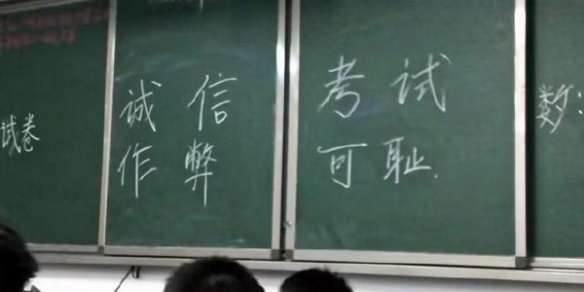 诚信 考试
作弊 可耻.
试卷
数: